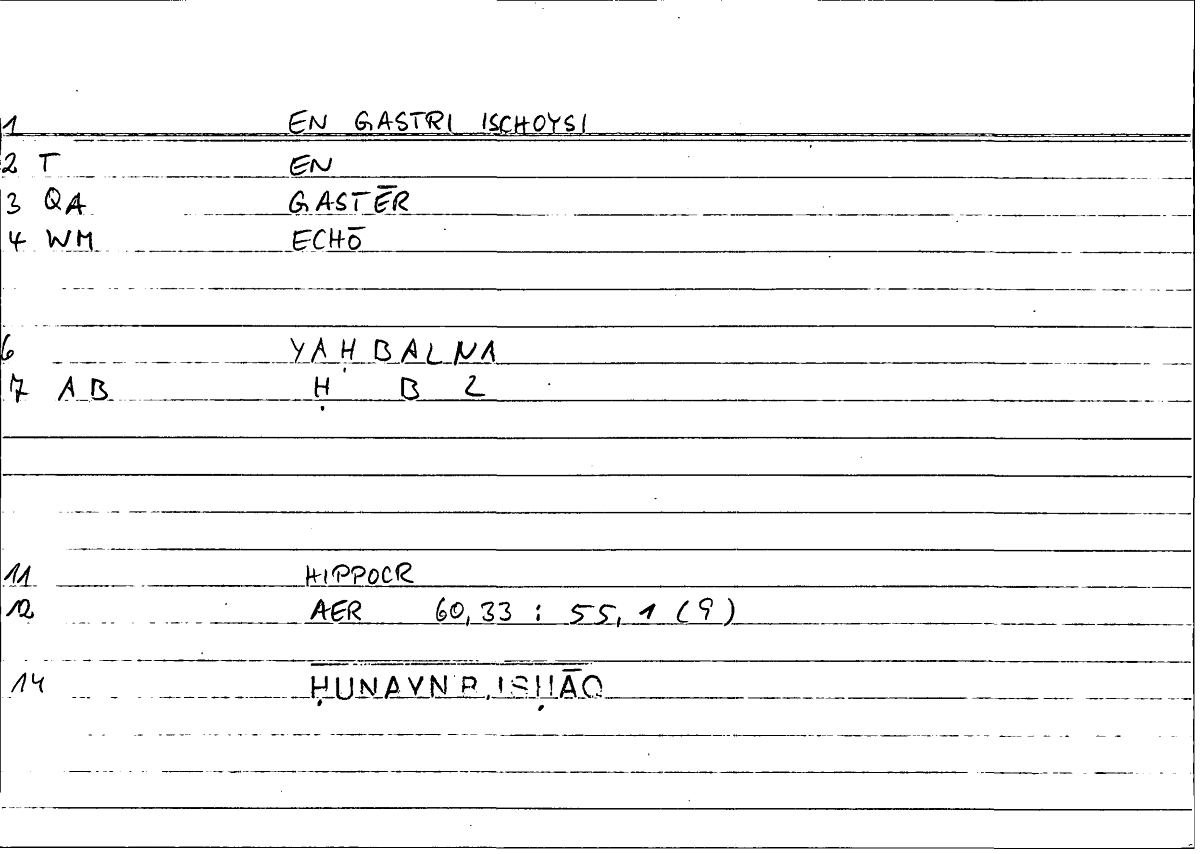 1 EN GASTRI ISCHOYSI
2 T EN
3 QA GASTĒR
4 WM ECHŌ
6 YAḤBALNA
7 AB Ḥ B L
11 HIPPOCR
12 AER 60,33 : 55,1 (9)
14 ḤUNAYN B. ISḤĀQ